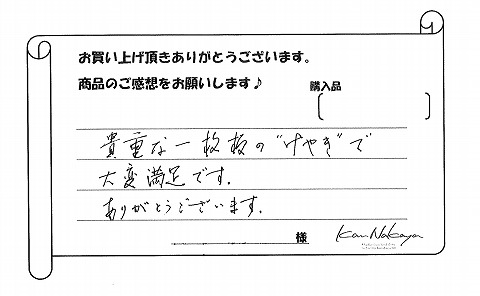 お買い上げ頂きありがとうございます。
商品のご感想をお願いします♪
購入品
貴重な一枚板の"けやき"で
大変満足です.
ありがとうございます.
様
Kan Nakaya